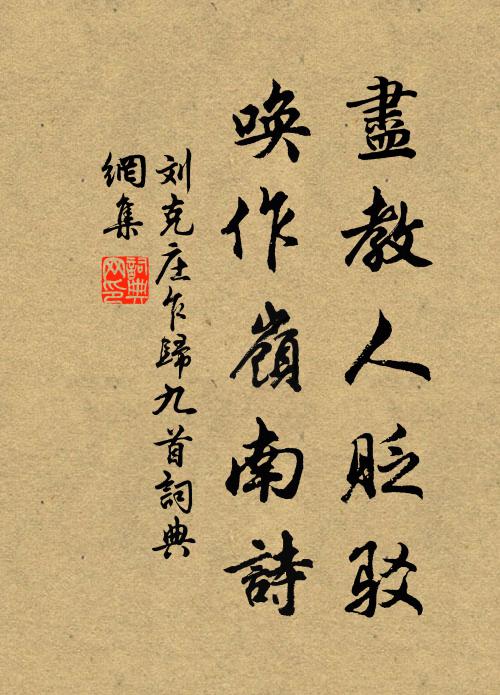 盡教人貶駁
喚作嶺南詩
刘克庄乍歸九首詞典
網集
詞典
网印